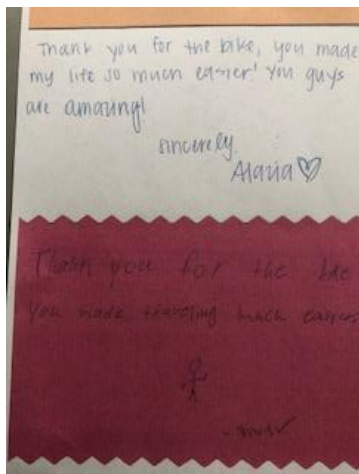 Thank you for the bike, you made
my life so much easier! You guys
are amazing!
sincerely,
Thank you for the
You made traveling much easier